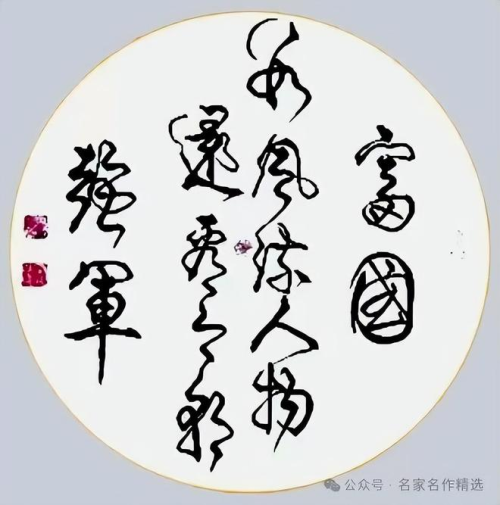 富國
数風流人物
還看今朝
強軍
公众号 · 名家名作精选